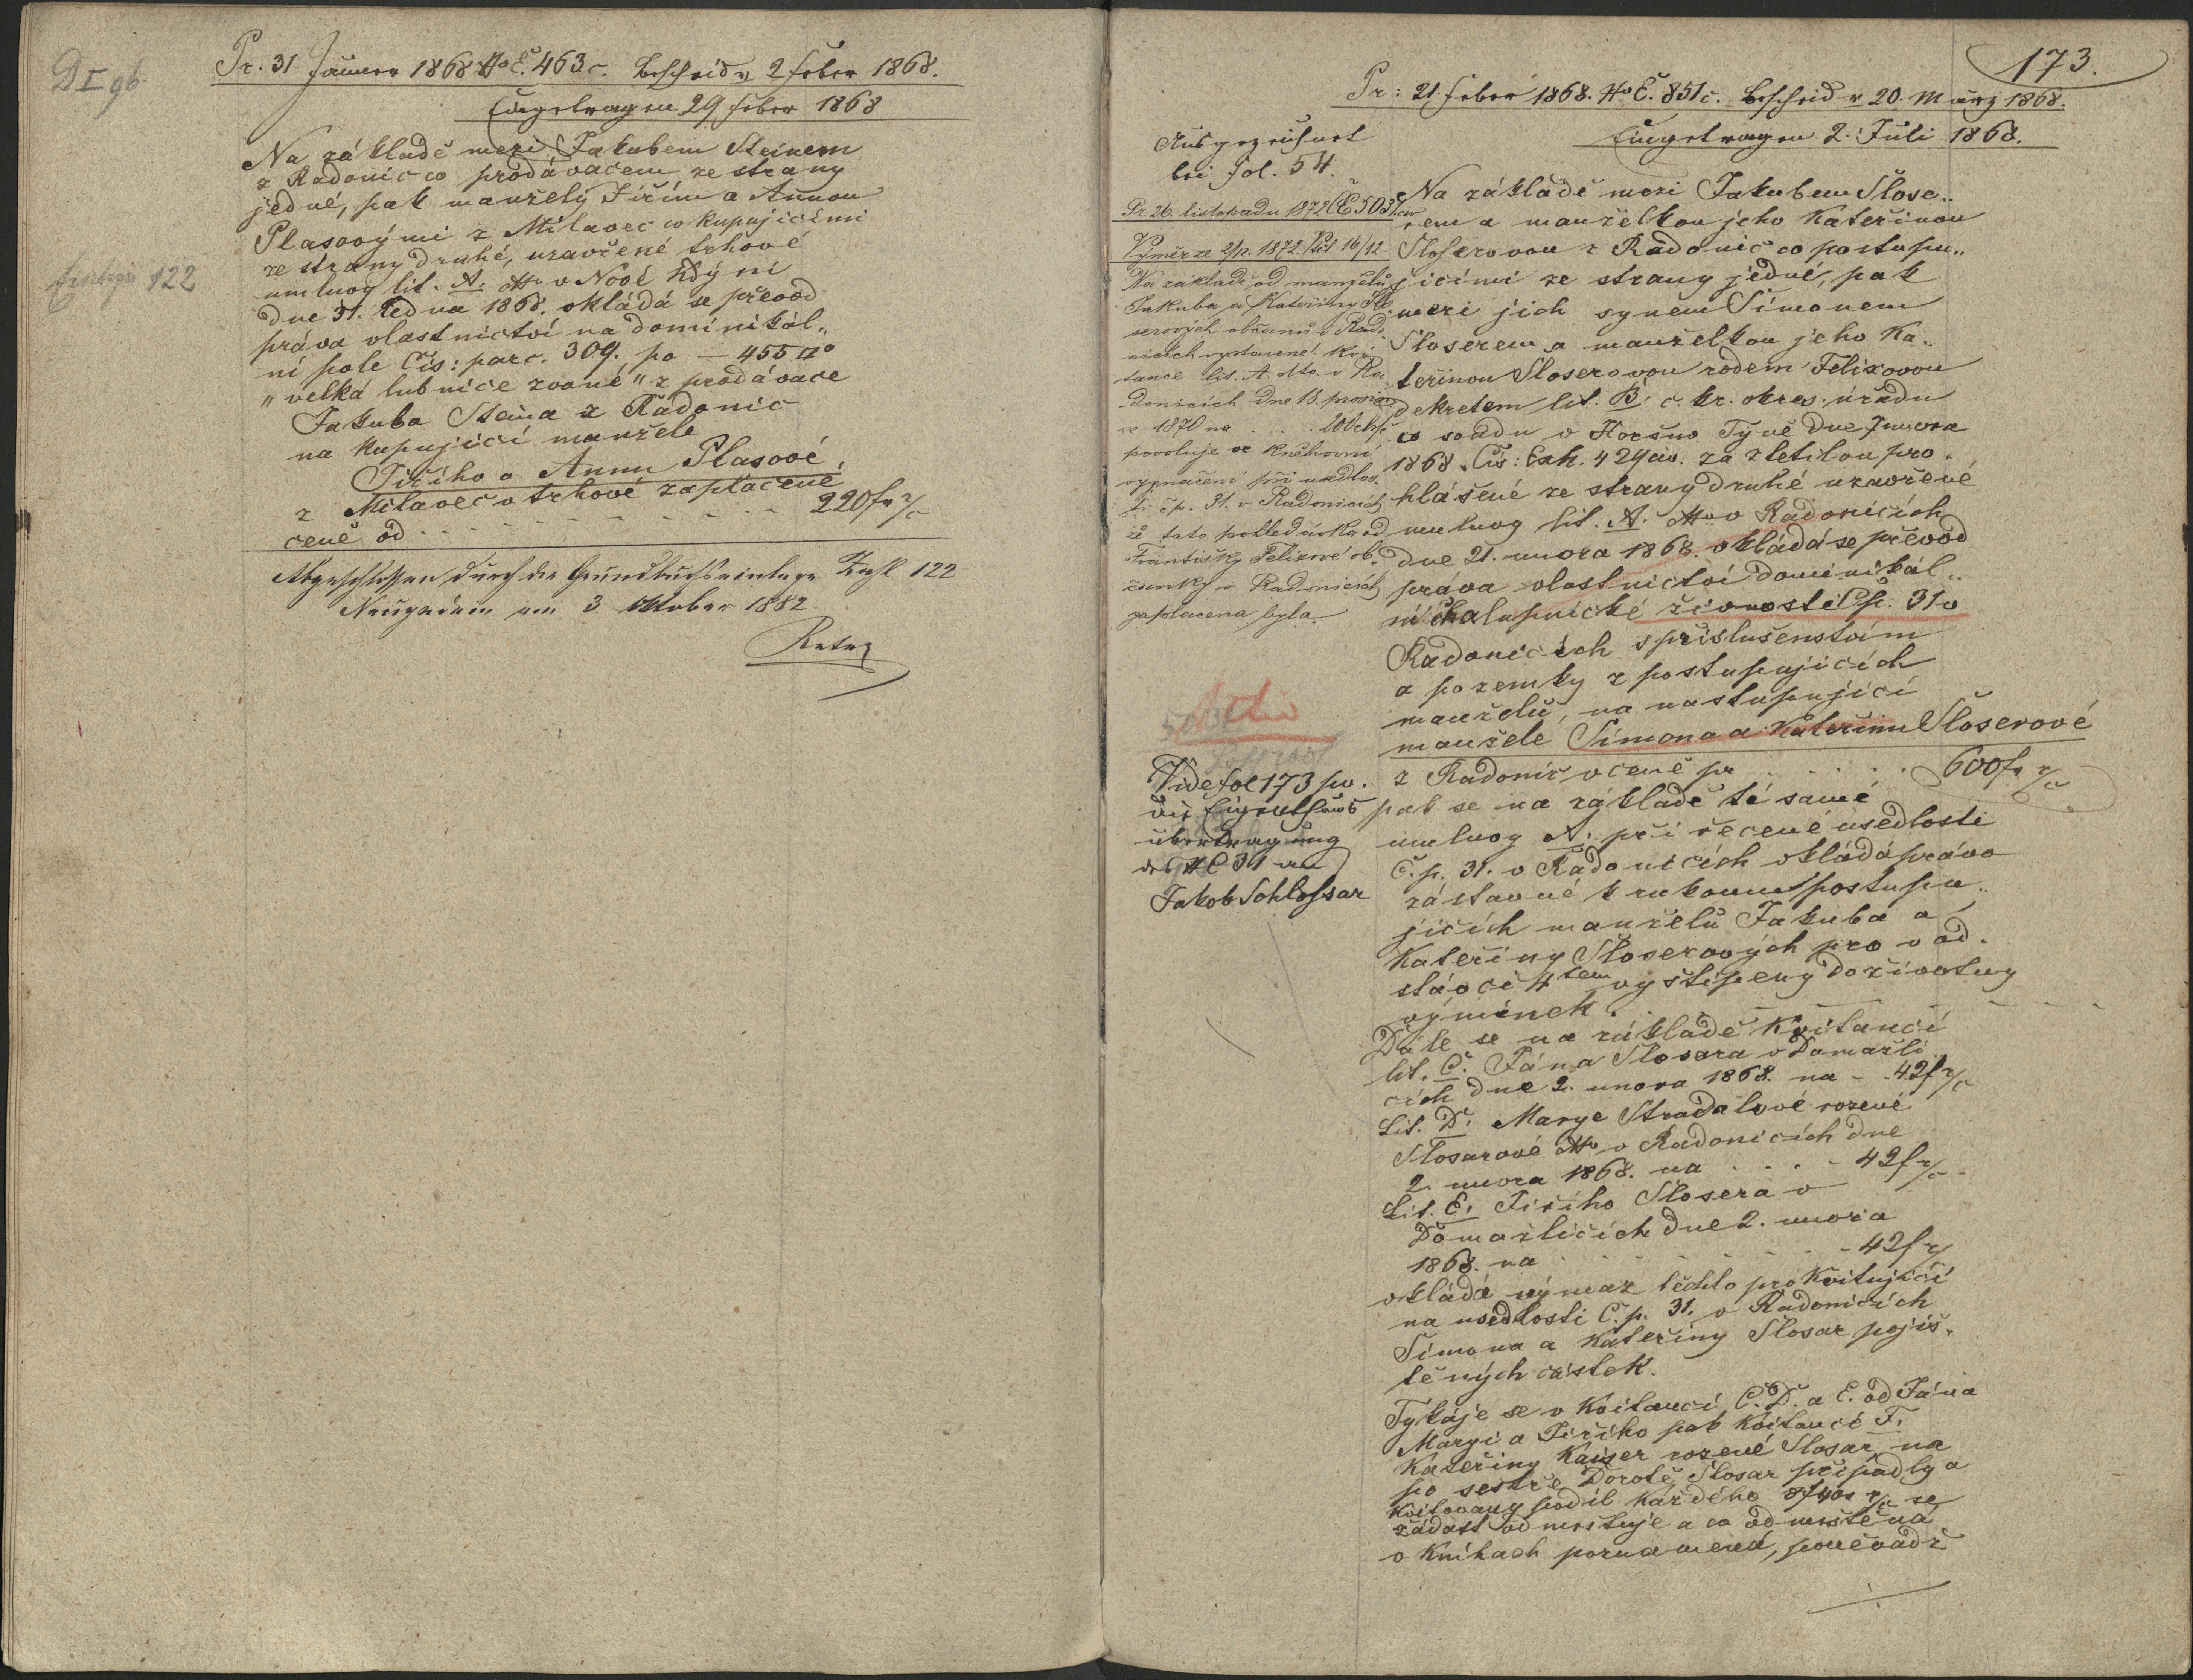 D I 96
Pr. 31 Jänner 1868 No E. 463 c. Bescheid v 2 feber 1868.
Eingetragen 29 feber 1868
Na základě mezi Jakubem Steinem
z Radonic co prodávačem ze strany
jedné, pak manžely Jiřím a Annou
Plasovými z Milavec co kupujícími
ze strany druhé, uzavřené trhové
umluvy lit. A. dto v Nové Kdýni
dne 31. ledna 1868. vkládá se převod
práva vlastnictví na dominikál„
ní pole Čís: parc. 309. po — 455 □°
„velká lubnice zvané" z prodávače
Jakuba Steina z Radonic
na kupující manžele
Jiřího a Annu Plasové,
z Milavec v trhové zaplacené
ceně od - - - - - - - 220 fr
Einlage 122
Abgeschlossen durch die Grundbuchseinlage Zahl 122
Neugedein am 3 Oktober 1882
173.
Pr: 21. feber 1868. No E. 851 c. Bescheid v 20. März 1868.
Eingetragen 2. Juli 1868.
Ausgezeichnet
bei fol. 54.
Pr. 26. listopadu 1872 ČE 5031 civ
Výměr ze 2/12. 1872. 16/12
Na základě od manželů
Jakuba a Kateřiny Šlo
serových občanů v Rado
nicích vystavené kvi
tance lit. A dto. v Ra
donicích dne 18. prosin
ce 1870 na . . 200
povoluje se knihovní
vyznačení při usedlos
ti čp. 31. v Radonicích
že tato pohledávka od
Františky Felixové ob„
čanky v Radonicích
zaplacena byla.
Na základě mezi Jakubem Šlose„
rem a manželkou jeho Kateřinou
Šloserovou z Radonic co postupu„
jícími ze strany jedné, pak
mezi jich synem Šimonem
Šloserem a manželkou jeho Ka„
teřinou Šloserovou rodem Felixovou
dekretem lit. B. c. kr. okres. úřadu
co soudu v Horšuo Týně dne 7 unora
1868. Čís: Exh. 429 civ. za zletilou pro„
hlášené ze strany druhé uzavřené
umluvy lit. A. dto v Radonicích
dne 21. unora 1868. vkládá se převod
práva vlastnictví dominikál„
ní chalupnické živnosti Čp. 31 v
Radonicích s příslušenstvím
a pozemky z postupujících
manželů, na nastupující
manžele Šimona a Kateřinu Šloserové
z Radonic v ceně pr . . . . . 600 fr
pak se na základě té samé
umluvy A. při řečené usedlosti
Č. p. 31. v Radonicích vkládá právo
zástavné k rukoum postupu„
jících manželů Jakuba a
Kateřiny Šloserových pro v od„
stávci 4tém vyštípený doživotny
výminek.
Vide fol 173 pv.
die Eigenthums
übertragung
des NC 31 an
Jakob Schlossar
Dále se na základě Kvitancí
lit. C. Jána Šlosara v Domažli„
cích dne 2. unora 1868. na - 42 f
Lit. D. Marye Stradalové rozené
Šlosarové dto v Radonicích dne
2. unora 1868. na . . . - 42 f
Lit. E. Jiřího Šlosera v
Domažlicích dne 2. unora
1868. na - - - - - 42 f
vkládá výmaz těchto pro kvitující
na usedlosti Č. p. 31. v Radonicích
Šimona a Kateřiny Šlosar pojiš„
těných částek.
Tykáje se v Kvitanci C. D. a E. od Jána
Maryi a Jiřího pak Kvitancí F.
Kateřiny Kaiser rozené Šlosar na
po sestře Dorotě Šlosar připadlý a
kvitovaný podíl každého 8 f 40 se
žádost odmrštuje a co odmrštěná
v Knihach poznamená, poněvadž